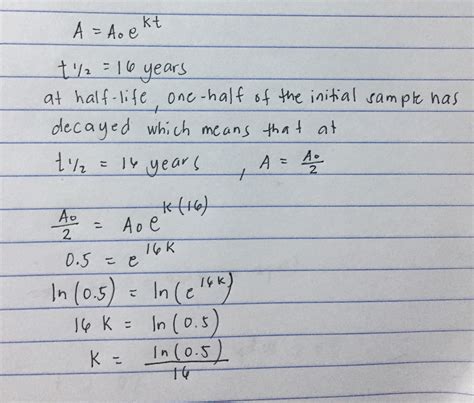 A = A₀e^kt
t 1/2 = 16 years
at half-life, one-half of the initial sample has
decayed which means that at
t 1/2 = 16 years, A = A₀/2
A₀/2 = A₀e^k(16)
0.5 = e^16k
ln(0.5) = ln(e^16k)
16k = ln(0.5)
k = ln(0.5)/16